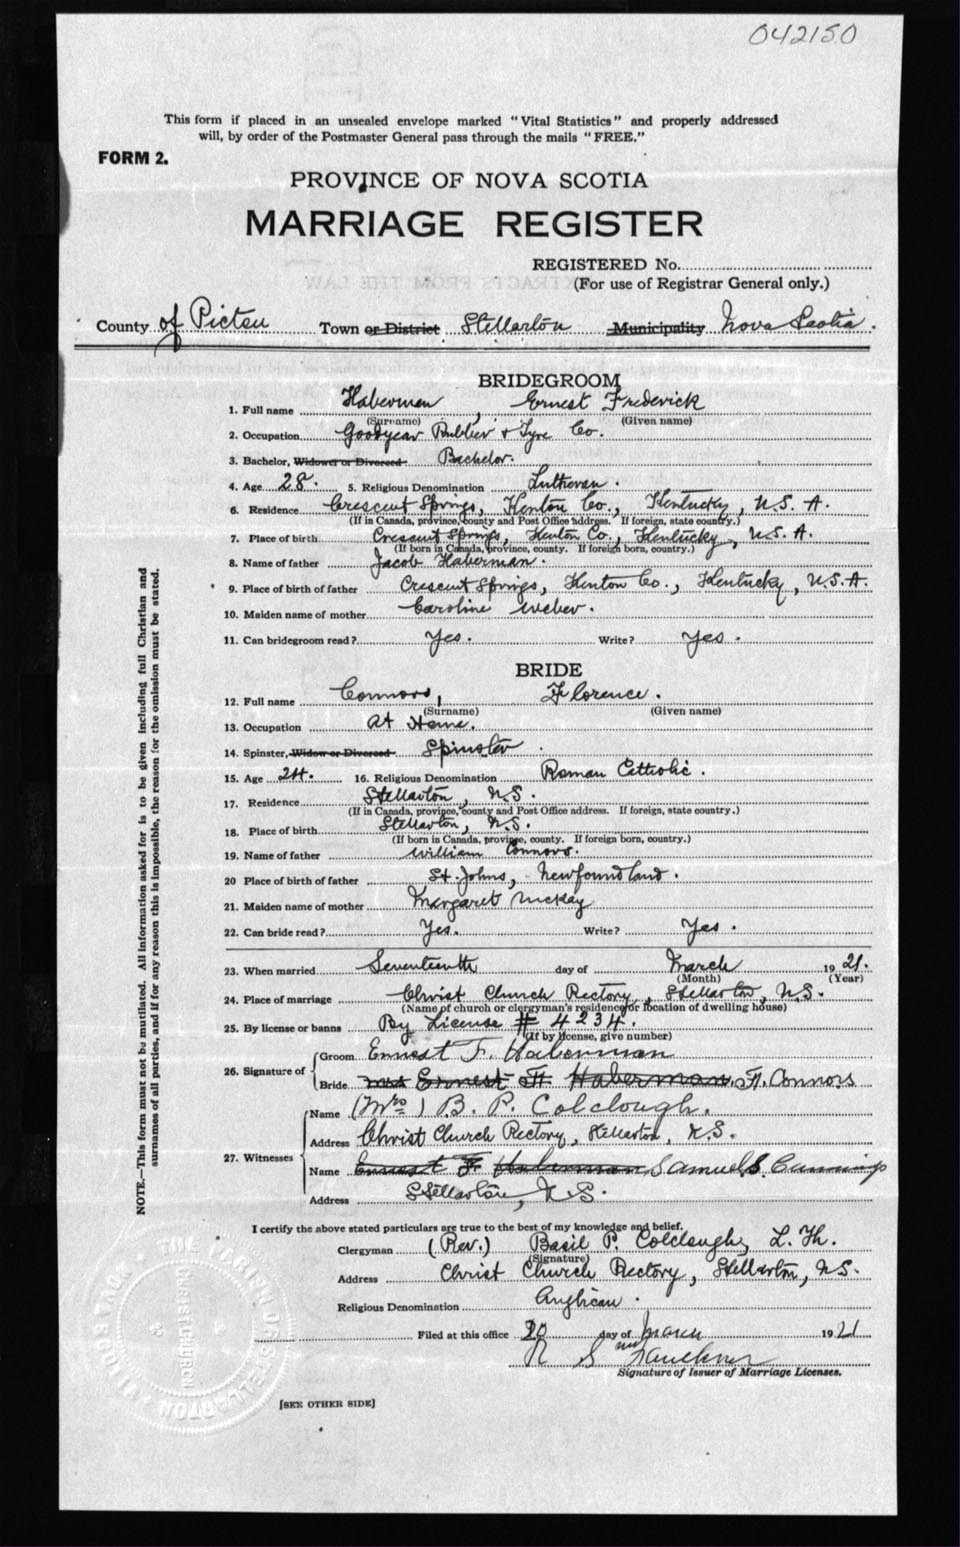 042150
This form if placed in an unsealed envelope marked "Vital Statistics" and properly addressed
will, by order of the Postmaster General pass through the mails "FREE."
FORM 2.
PROVINCE OF NOVA SCOTIA
MARRIAGE REGISTER
REGISTERED No.
(For use of Registrar General only.)
County of Pictou Town or District Stellarton Municipality Nova Scotia.
BRIDEGROOM
1. Full name Haberman, Ernest Frederick
(Surname) (Given name)
2. Occupation Goodyear Rubber & Tyre Co.
3. Bachelor, Widower or Divorced Bachelor.
4. Age 28. 5. Religious Denomination Lutheran.
6. Residence Crescent Springs, Kenton Co., Kentucky, U.S.A.
(If in Canada, province, county and Post Office address. If foreign, state country.)
7. Place of birth Crescent Springs, Kenton Co., Kentucky, U.S.A.
(If born in Canada, province, county. If foreign born, country.)
8. Name of father Jacob Haberman.
9. Place of birth of father Crescent Springs, Kenton Co., Kentucky, U.S.A.
10. Maiden name of mother Caroline Weber.
11. Can bridegroom read? Yes. Write? Yes.
BRIDE
12. Full name Connors, Florence.
(Surname) (Given name)
13. Occupation At Home.
14. Spinster, Widow or Divorced Spinster.
15. Age 24. 16. Religious Denomination Roman Catholic.
17. Residence Stellarton, N.S.
(If in Canada, province, county and Post Office address. If foreign, state country.)
18. Place of birth Stellarton, N.S.
(If born in Canada, province, county. If foreign born, country.)
19. Name of father William Connors.
20 Place of birth of father St. Johns, Newfoundland.
21. Maiden name of mother Margaret McKay
22. Can bride read? Yes. Write? Yes.
23. When married Seventeenth day of March 1921.
(Month) (Year)
24. Place of marriage Christ Church Rectory, Stellarton, N.S.
(Name of church or clergyman's residence, or location of dwelling house)
25. By license or banns By License # 4234.
(If by license, give number)
26. Signature of Groom Ernest F. Haberman
Bride Mrs Ernest F. Haberman. F. Connors
27. Witnesses Name (Mrs) B. P. Colclough.
Address Christ Church Rectory, Stellarton, N.S.
Name Ernest F. Haberman Samuel S.
Address Stellarton, N.S.
NOTE.—This form must not be mutilated. All information asked for is to be given including full Christian and
surnames of all parties, and if for any reason this is impossible, the reason for the omission must be stated.
I certify the above stated particulars are true to the best of my knowledge and belief.
Clergyman (Rev.) Basil P. Colclough, L. Th.
(Signature)
Address Christ Church Rectory, Stellarton, N.S.
Religious Denomination Anglican.
Filed at this office 20 day of March 1921
R S Faulkner
Signature of Issuer of Marriage Licenses.
[SEE OTHER SIDE]